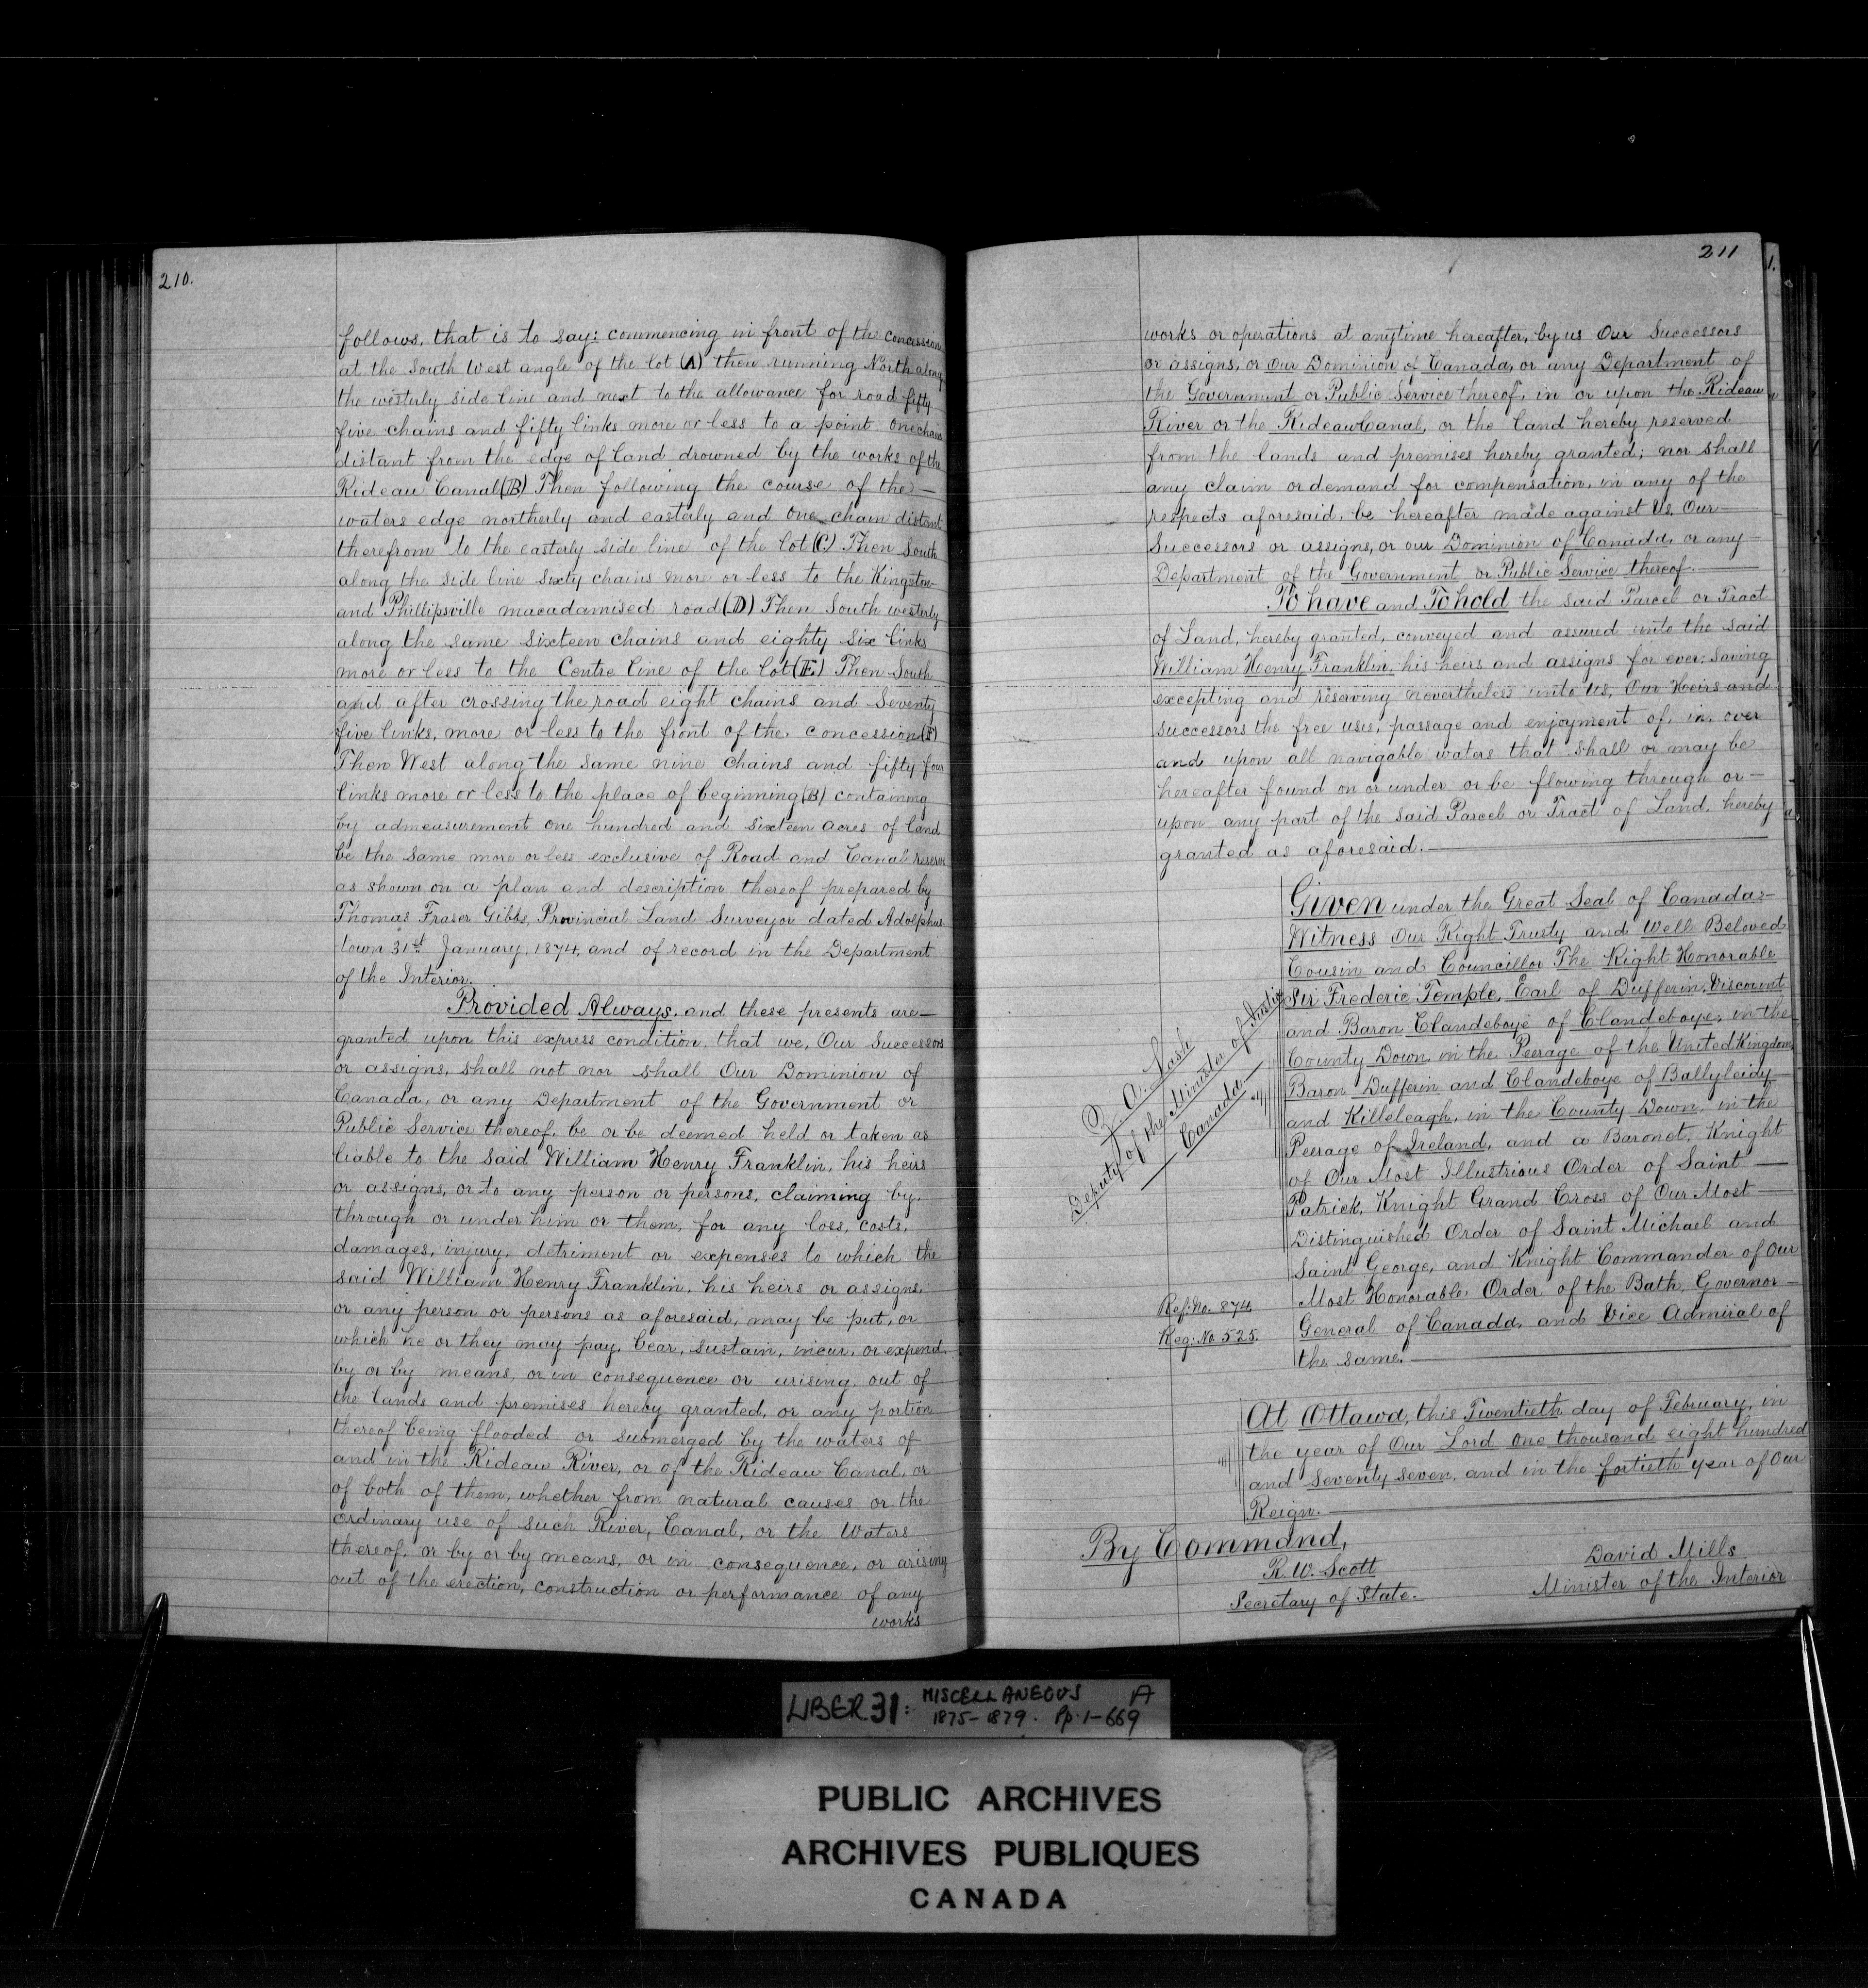 210.
follows, that is to say: commencing in front of the concession
at the South West angle of the lot (A) then running North along
the westerly side line and next to the allowance for road fifty
five chains and fifty links more or less to a point one chain
distant from the edge of land drowned by the works of the
Rideau Canal (B) Then following the course of the —
waters edge northerly and easterly and one chain distant
therefrom to the easterly side line of the lot (C) Then South
along the side line sixty chains more or less to the Kingston
and Phillipsville macadamised road (D) Then South westerly
along the same sixteen chains and eighty six links
more or less to the Centre line of the lot (E) Then South
and after crossing the road eight chains and Seventy
five links, more or less to the front of the concession (F)
Then West along the same nine chains and fifty four
links more or less to the place of beginning (B) containing
by admeasurement one hundred and sixteen acres of land
be the same more or less exclusive of Road and Canal reserve
as shown on a plan and description thereof prepared by
Thomas Fraser Gibbs, Provincial Land Surveyor dated Adolphus
town 31st January, 1874, and of record in the Department
of the Interior.
Provided Always, and these presents are —
granted upon this express condition, that we, Our Successors
or assigns, shall not nor shall Our Dominion of
Canada, or any Department of the Government or
Public Service thereof, be or be deemed held or taken as
liable to the said William Henry Franklin, his heirs
or assigns, or to any person or persons, claiming by,
through or under him or them, for any loss, costs,
damages, injury, detriment or expenses to which the
said William Henry Franklin, his heirs or assigns,
or any person or persons as aforesaid, may be put, or
which he or they may pay, bear, sustain, incur, or expend
by or by means, or in consequence or arising, out of
the lands and premises hereby granted, or any portion
thereof being flooded or submerged by the waters of
and in the Rideau River, or of the Rideau Canal, or
of both of them, whether from natural causes or the
ordinary use of such River, Canal, or the Waters
thereof, or by or by means, or in consequence, or arising
out of the erection, construction or performance of any
works
211
works or operations at anytime hereafter, by us Our Successors
or assigns, or Our Dominion of Canada, or any Department of
the Government or Public Service thereof, in or upon the Rideau
River or the Rideau Canal, or the land hereby reserved
from the lands and premises hereby granted; nor shall
any claim or demand for compensation, in any of the
respects aforesaid, be hereafter made against Us, Our —
Successors or assigns, or our Dominion of Canada, or any —
Department of the Government or Public Service thereof. —
To have and To hold the said Parcel or Tract
of Land, hereby granted, conveyed and assured unto the said
William Henry Franklin, his heirs and assigns for ever: Saving
excepting and reserving nevertheless unto Us, Our Heirs and
Successors the free uses, passage and enjoyment of, in, over
and upon all navigable waters that shall or may be
hereafter found on or under or be flowing through or —
upon any part of the said Parcel or Tract of Land, hereby
granted as aforesaid. —
Given under the Great Seal of Canada:—
Witness Our Right Trusty and Well Beloved
Cousin and Councillor The Right Honorable
Sir Frederic Temple, Earl of Dufferin, Viscount
and Baron Clandeboye of Clandeboye, in the
County Down, in the Peerage of the United Kingdom,
Baron Dufferin and Clandeboye of Ballyleidy —
and Killeleagh, in the County Down, in the
Peerage of Ireland, and a Baronet, Knight
of Our Most Illustrious Order of Saint —
Patrick, Knight Grand Cross of Our Most —
Distinguished Order of Saint Michael and
Saint George, and Knight Commander of Our
Most Honorable Order of the Bath, Governor —
General of Canada, and Vice Admiral of
the same. —
Z. A. Lash
Deputy of the Minister of Justice
— Canada —
Ref: No. 874.
Reg: No 525.
At Ottawa, this Twentieth day of February, in
the year of Our Lord one thousand eight hundred
and seventy seven, and in the fortieth year of Our
Reign. —
By Command,
R. W. Scott
Secretary of State.
David Mills
Minister of the Interior
LIBER 31: MISCELLANEOUS A
1875-1879. Pp. 1-669
PUBLIC ARCHIVES
ARCHIVES PUBLIQUES
CANADA